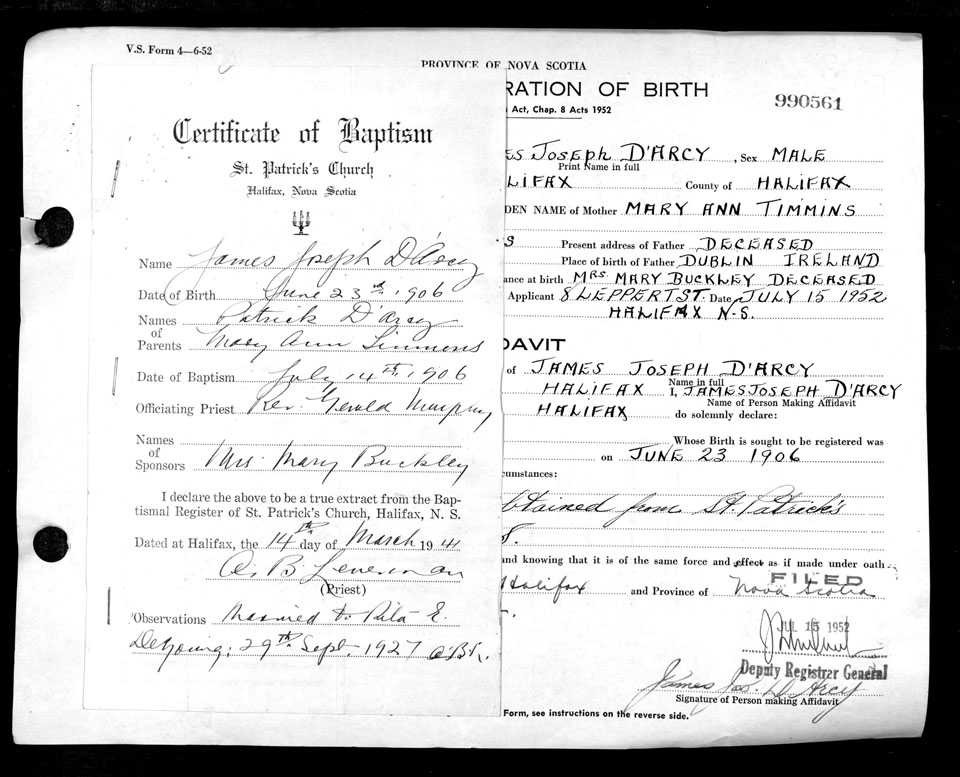 V.S. Form 4—6-52
PROVINCE OF NOVA SCOTIA
Certificate of Baptism
St. Patrick's Church
Halifax, Nova Scotia
Name James Joseph D'Arcy
Date of Birth June 23rd 1906
Names of Parents Patrick D'arcy
Mary Ann Timmons
Date of Baptism July 14th, 1906
Officiating Priest Rev. Gerald Murphy
Names of Sponsors Mrs. Mary Buckley
I declare the above to be a true extract from the Bap-
tismal Register of St. Patrick's Church, Halifax, N. S.
Dated at Halifax, the 14th day of March 1941
(Priest)
Observations Married to Rita E.
DeYoung: 29th Sept. 1927
RATION OF BIRTH
990561
Act, Chap. 8 Acts 1952
ES JOSEPH D'ARCY, Sex MALE
Print Name in full
LIFAX County of HALIFAX
DEN NAME of Mother MARY ANN TIMMINS
S Present address of Father DECEASED
Place of birth of Father DUBLIN IRELAND
ance at birth MRS. MARY BUCKLEY DECEASED
Applicant 8 LEPPERT ST. Date JULY 15 1952
HALIFAX N.S.
DAVIT
of JAMES JOSEPH D'ARCY
Name in full
HALIFAX I, JAMES JOSEPH D'ARCY
Name of Person Making Affidavit
HALIFAX do solemnly declare:
Whose Birth is sought to be registered was
on JUNE 23 1906
cumstances:
btained from St. Patrick's
and knowing that it is of the same force and effect as if made under oath
Halifax and Province of Nova Scotia
FILED
JUL 15 1952
Deputy Registrar General
James Jos. D'Arcy
Signature of Person making Affidavit
Form, see instructions on the reverse side.